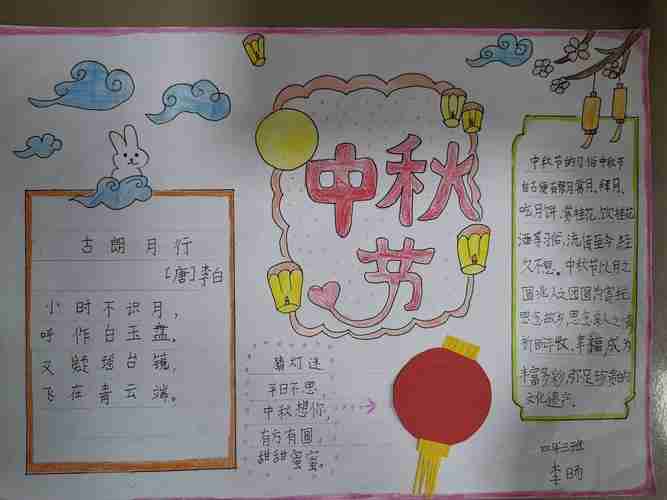 中秋
节
古朗月行
[唐]李白
小时不识月，
呼作白玉盘。
又疑瑶台镜，
飞在青云端。
猜灯迷
平日不思，
中秋想你，
有方有圆，
甜甜蜜蜜。
中秋节的习俗中秋节
自古便有祭月、赏月、拜月、
吃月饼、赏桂花、饮桂花
酒等习俗，流传至今，经
久不息。中秋节以月之
圆兆人之团圆，为寄托
思念故乡，思念亲人之情，
祈盼丰收、幸福，成为
丰富多彩、弥足珍贵的
文化遗产。
四年三班
李旸